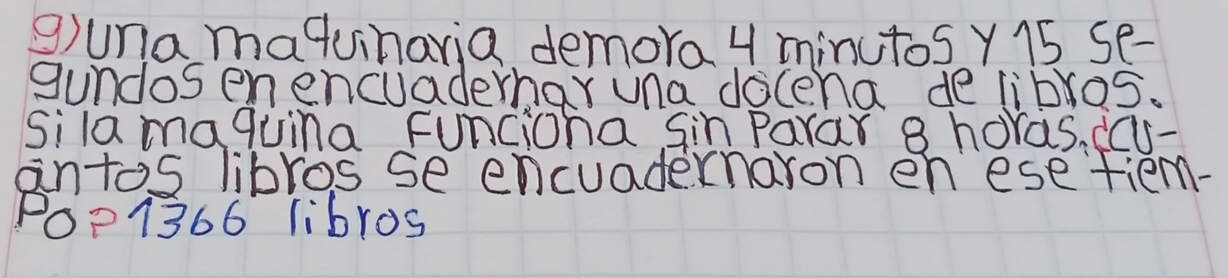 g) una maquinaria demora 4 minutos y 15 se-
gundos en encuadernar una docena de libros.
si la maquina funciona sin parar 8 horas. ¿cu-
antos libros se encuadernaron en ese tiem-
po? 1366 libros